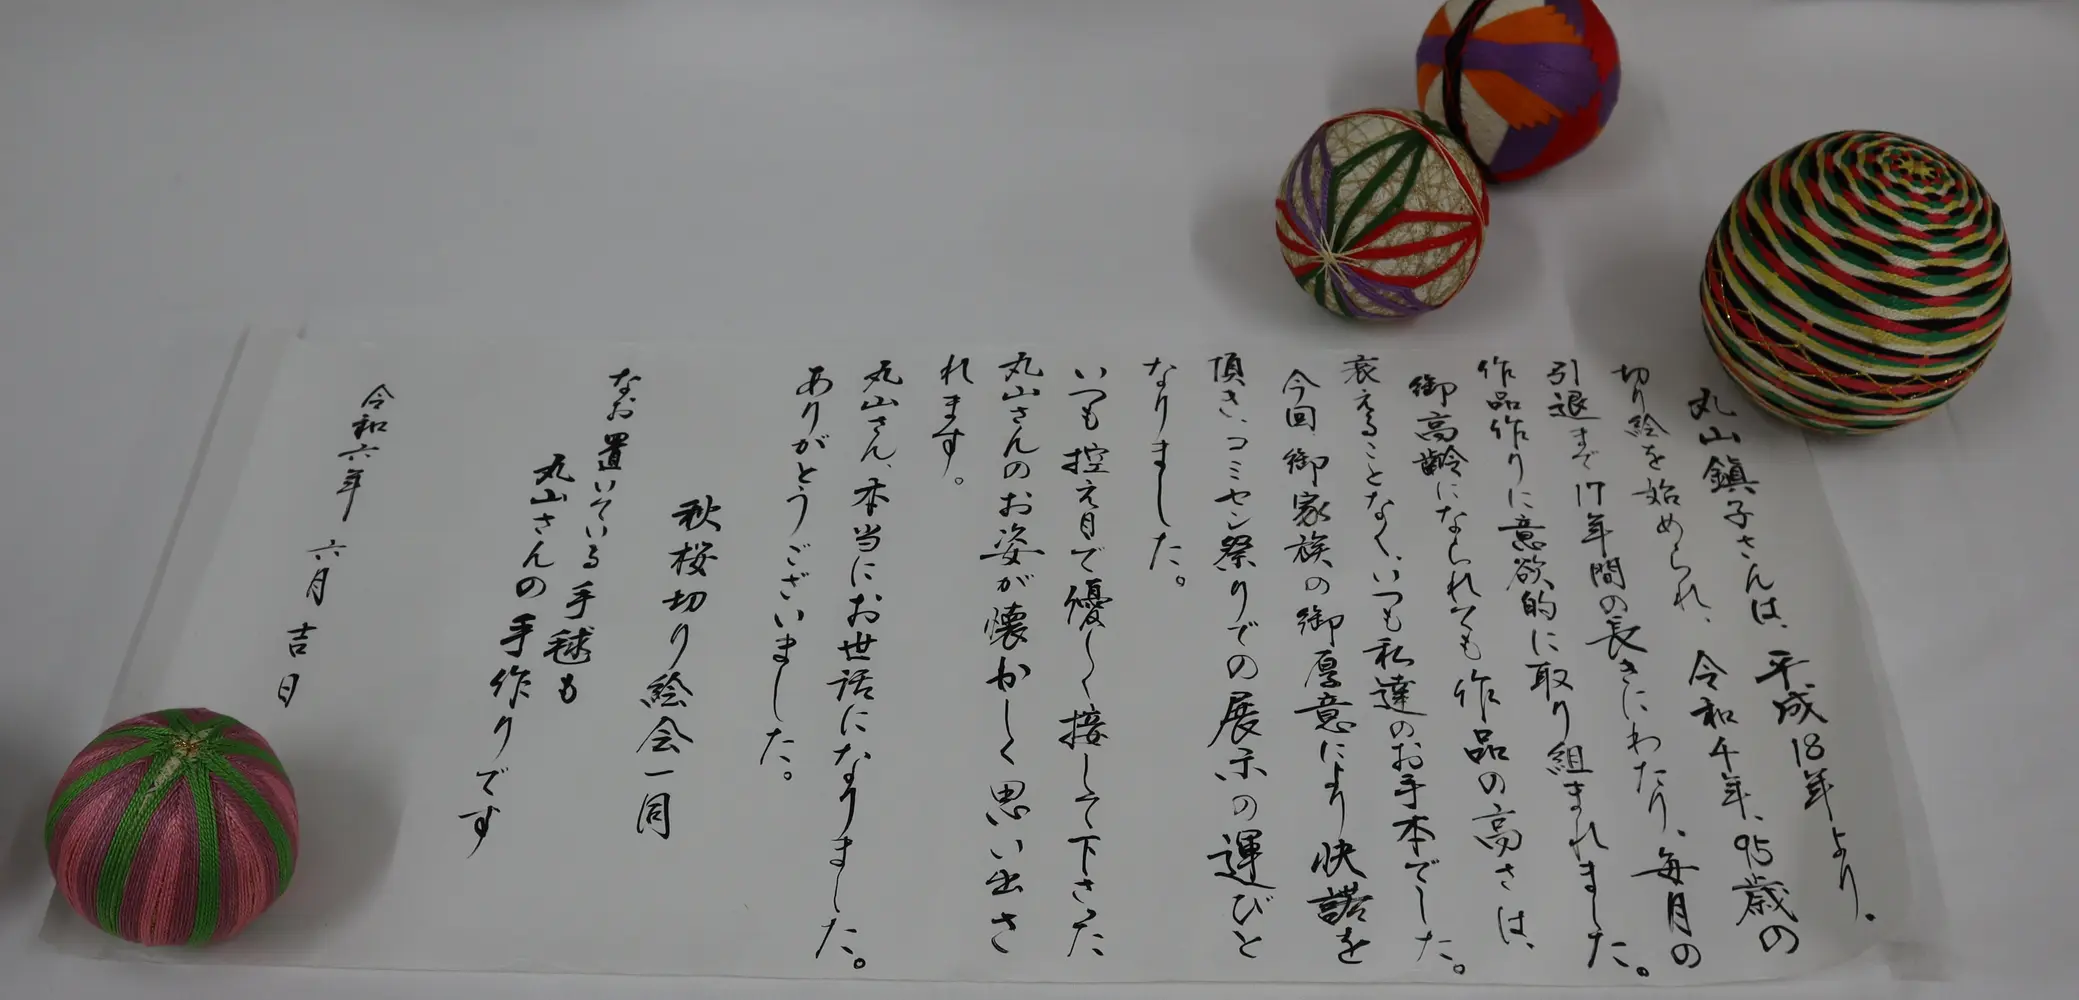 丸山鎭子さんは、平成18年より。
切り絵を始められ、令和4年、95歳の
引退まで17年間の長きにわたり、毎月の
作品作りに意欲的に取り組まれました。
御高齢になられても作品の高さは、
衰えることなく、いつも私達のお手本でした。
今回、御家族の御厚意により快諾を
頂き、コミセン祭りでの展示の運びと
なりました。
いつも控え目で優しく接して下さった
丸山さんのお姿が懐かしく思い出さ
れます。
丸山さん、本当にお世話になりました。
ありがとうございました。
秋桜切り絵会一同
なお置いている手毬も
丸山さんの手作りです
令和六年 六月 吉日